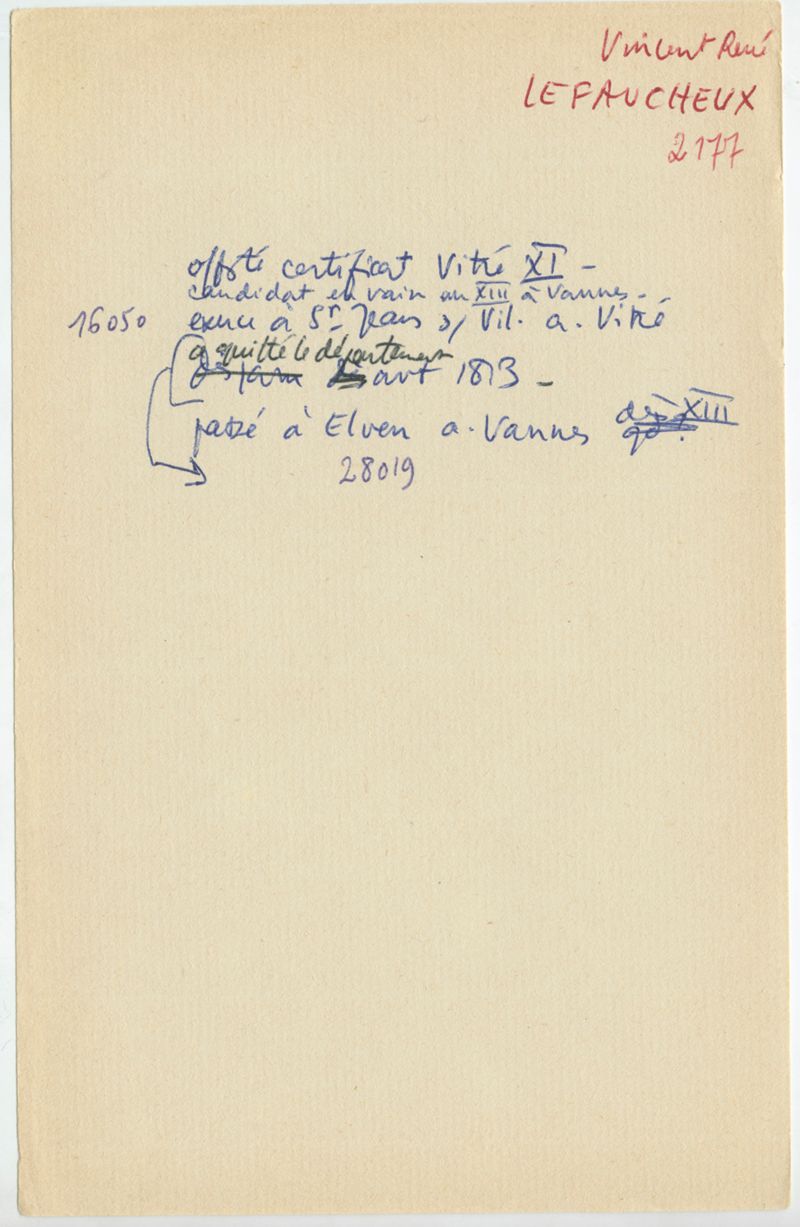 Vincent René
LEFAUCHEUX
2177
offste certificat Vitré XI -
candidat en vain an XIII à Vannes -
16050 exerce à St Jean s/ Vil. a. Vitré
a quitté le département
avt 1813 -
passé à Elven a. Vannes dès XIII
28019